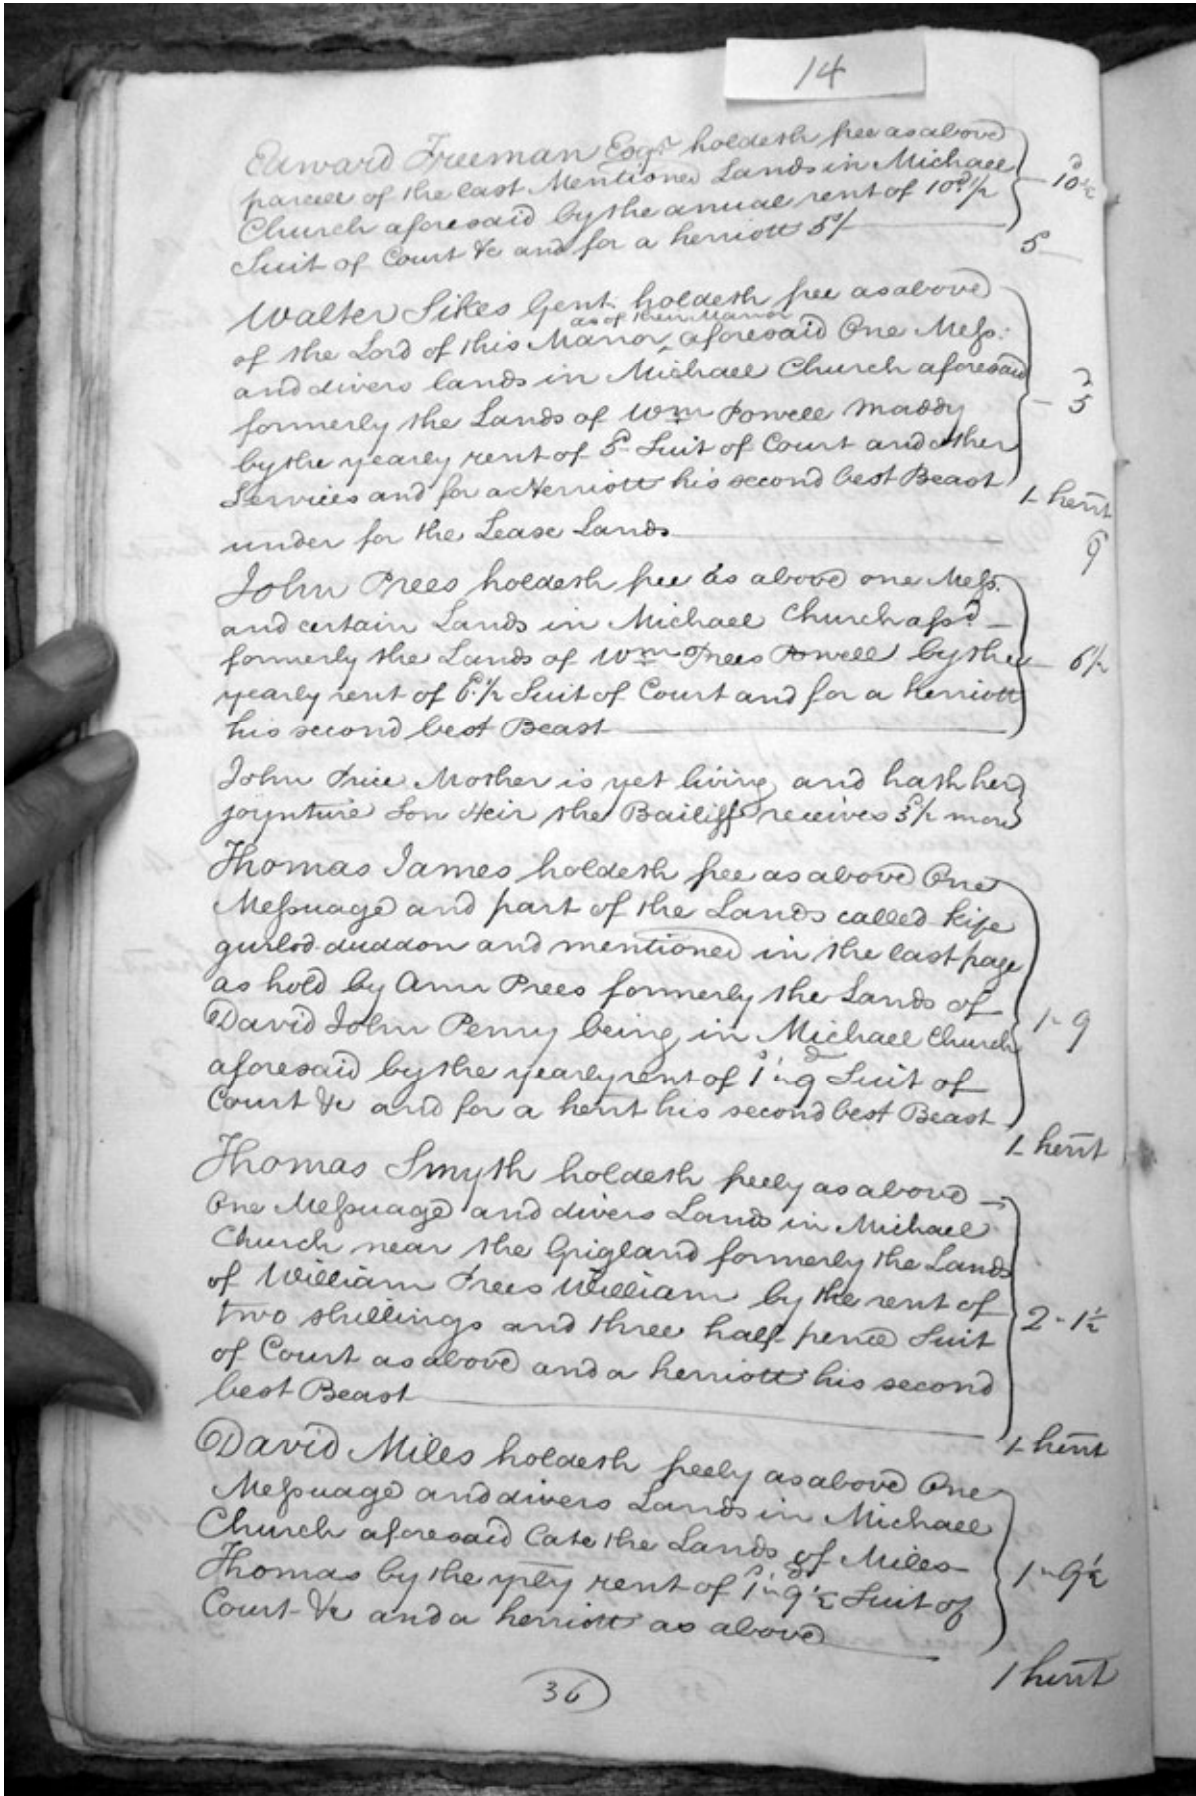 14
Edward Freeman Esqr. holdeth free as above
parcell of the last Mentioned Lands in Michael
Church aforesaid by the anual rent of 10d. 1/2
Suit of Court &c and for a herriott 5/
d
10 1/2
5
Walter Sikes Gent. holdeth free as above
as of their Manor
of the Lord of this Manor ‸ aforesaid One Mess:
and divers lands in Michael Church aforesaid
formerly the Lands of Wm Powell Maddy
by the yearly rent of 5d Suit of Court and other
Services and for a Herriott his second best Beast
under for the Lease Lands
d
5
1 herrt
John Prees holdeth free as above one Mess.
and certain Lands in Michael Church afsd.
formerly the Lands of Wm Prees Powell by the
yearly rent of 6d. 1/2 Suit of Court and for a herriott
his second best Beast
6 1/2
John Price Mother is yet living and hath her
joynture Son Heir the Bailiff receives 3d 1/2 more
Thomas James holdeth free as above One
Messuage and part of the Lands called
and mentioned in the last page
as hold by Ann Prees formerly the Lands of
David John Penry being in Michael Church
aforesaid by the yearly rent of 1s "9d Suit of
Court &c and for a herrt his second best Beast
1 - 9
1 herrt
Thomas Smyth holdeth freely as above
One Messuage and divers Lands in Michael
Church near the Grigland formerly the Lands
of William Prees William by the rent of
two shillings and three half pence Suit
of Court as above and a herriott his second
best Beast
2 - 1 1/2
1 herrt
David Miles holdeth freely as above One
Messuage and divers Lands in Michael
Church aforesaid Late the Lands of Miles
Thomas by the yrly rent of 1s "9d 1/2 Suit of
Court &c and a herriott as above
1 " 9 1/2
1 herrt
36